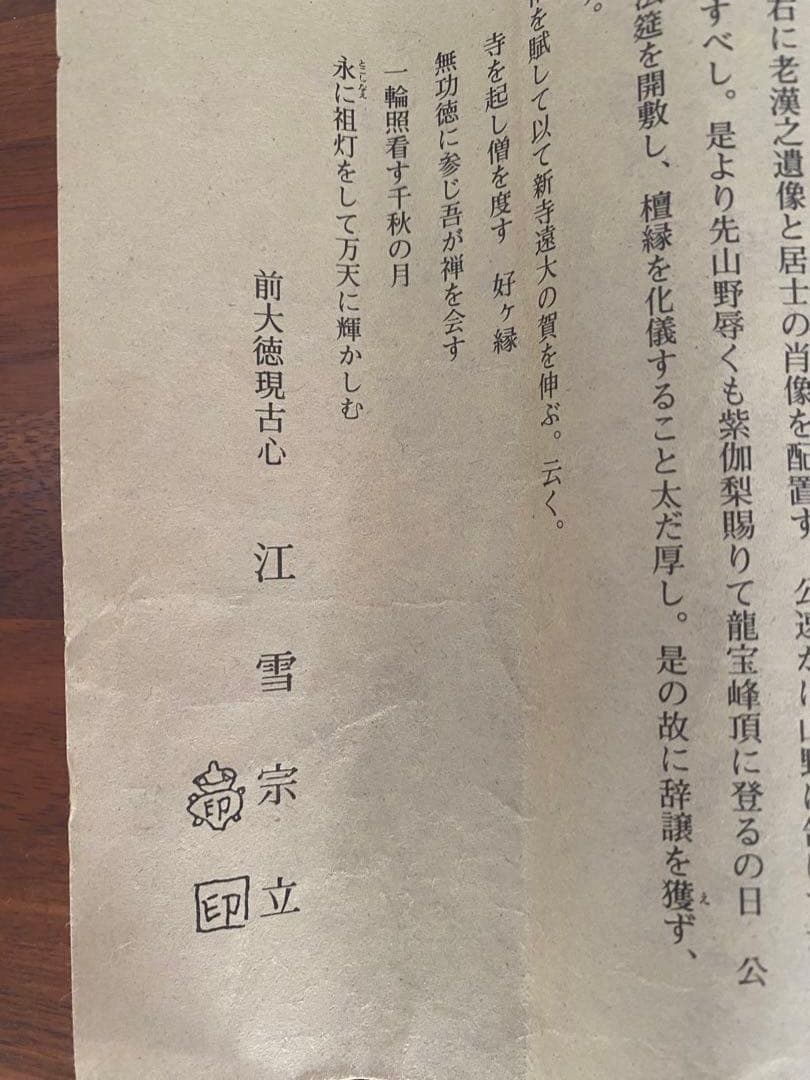 右に老漢之遺像と居士の肖像を配置す
すべし。是より先山野辱くも紫伽梨賜りて龍宝峰頂に登るの日　公
法筵を開敷し、檀縁を化儀すること太だ厚し。是の故に辞譲を獲ず、
え
を賦して以て新寺遠大の賀を伸ぶ。云く。
寺を起し僧を度す　好ヶ縁
無功徳に参じ吾が禅を会す
一輪照看す千秋の月
永に祖灯をして万天に輝かしむ
前大徳現古心　江雪宗立
印
印